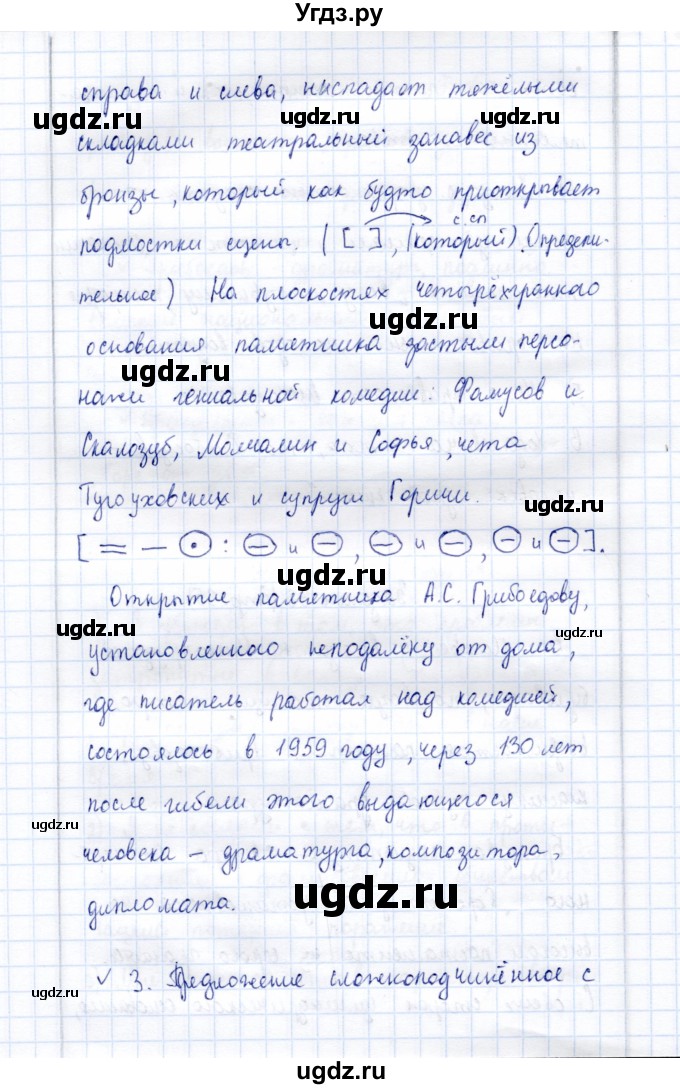 Угдз.ру
справа и слева, ниспадает тяжёлыми
складками театральный занавес из
бронзы, который как будто приоткрывает
с.сл
подмостки сцены. ( [ ], (который). Определи-
тельное) На плоскостях четырёхгранного
основания памятника застыли персо-
нажи гениальной комедии: Фамусов и
Скалозуб, Молчалин и Софья, чета
Тугоуховских и супруги Горичи.
[ = — ⊙ : ⊖ и ⊖, ⊖ и ⊖, ⊖ и ⊖ ].
Открытие памятника А.С. Грибоедову,
установленного неподалёку от дома,
где писатель работал над комедией,
состоялось в 1959 году, через 130 лет
после гибели этого выдающегося
человека – драматурга, композитора,
дипломата.
✓ 3. Предложение сложноподчинённое с
ugdz.ru
ugdz.ru
ugdz.ru
ugdz.ru
ugdz.ru
ugdz.ru
ugdz.ru
ugdz.ru
ugdz.ru
ugdz.ru
ugdz.ru
ugdz.ru
ugdz.ru
ugdz.ru